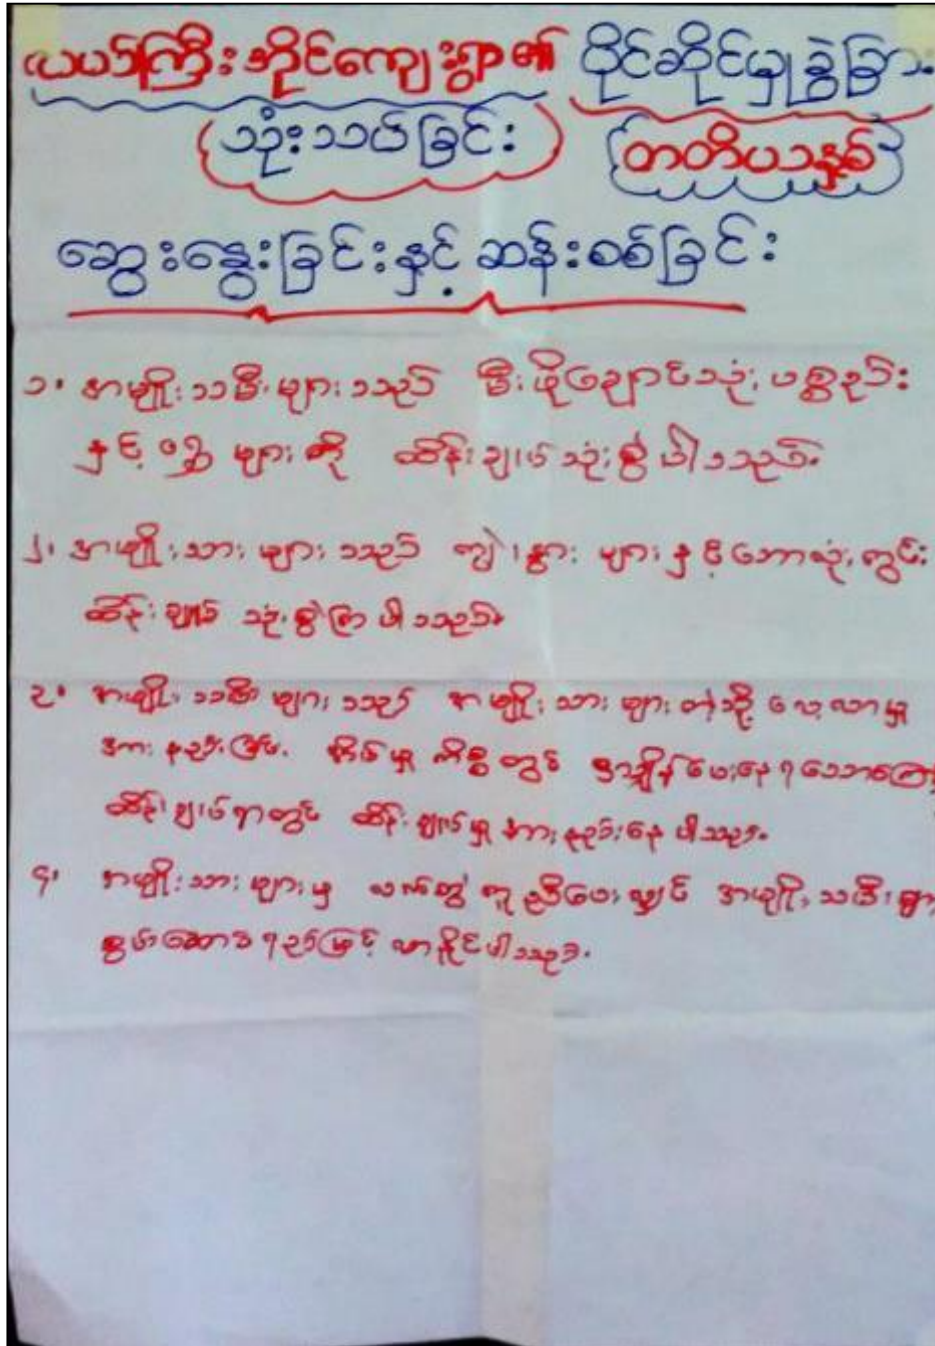 ယယ်ကြီးအိုင်ကျေးရွာ၏ ပိုင်ဆိုင်မှုခွဲခြား
သုံးသပ်ခြင်း တတိယနှစ်
ဆွေးနွေးခြင်းနှင့် ဆန်းစစ်ခြင်း
၁။ အမျိုးသမီးများသည် မီးဖိုချောင်သုံးပစ္စည်း
နှင့် ဝတ္ထု များကို ထိန်းချုပ်သုံးစွဲပါသည်။
၂။ အမျိုးသားများသည် ကျွဲ၊နွားများနှင့်ဘောလုံးကွင်း
ထိန်းချုပ် သုံးစွဲကြပါသည်။
၃။ အမျိုးသမီးများသည် အမျိုးသားများကဲ့သို့ လေ့လာမှု
အားနည်းခြင်း၊ အိမ်မှုကိစ္စတွင် အချိန်ပေးနေရသောကြော
ထိန်းချုပ်ရာတွင် ထိန်းချုပ်မှုအားနည်းနေပါသည်။
၄။ အမျိုးသားများမှ လက်တွဲကူညီပေးလျှင် အမျိုးသမီးများ
စွမ်းဆောင်ရည်မြင့်လာနိုင်ပါသည်။